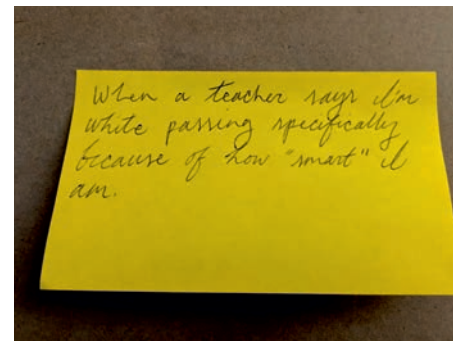 When a teacher says I'm
white passing specifically
because of how "smart" I
am.